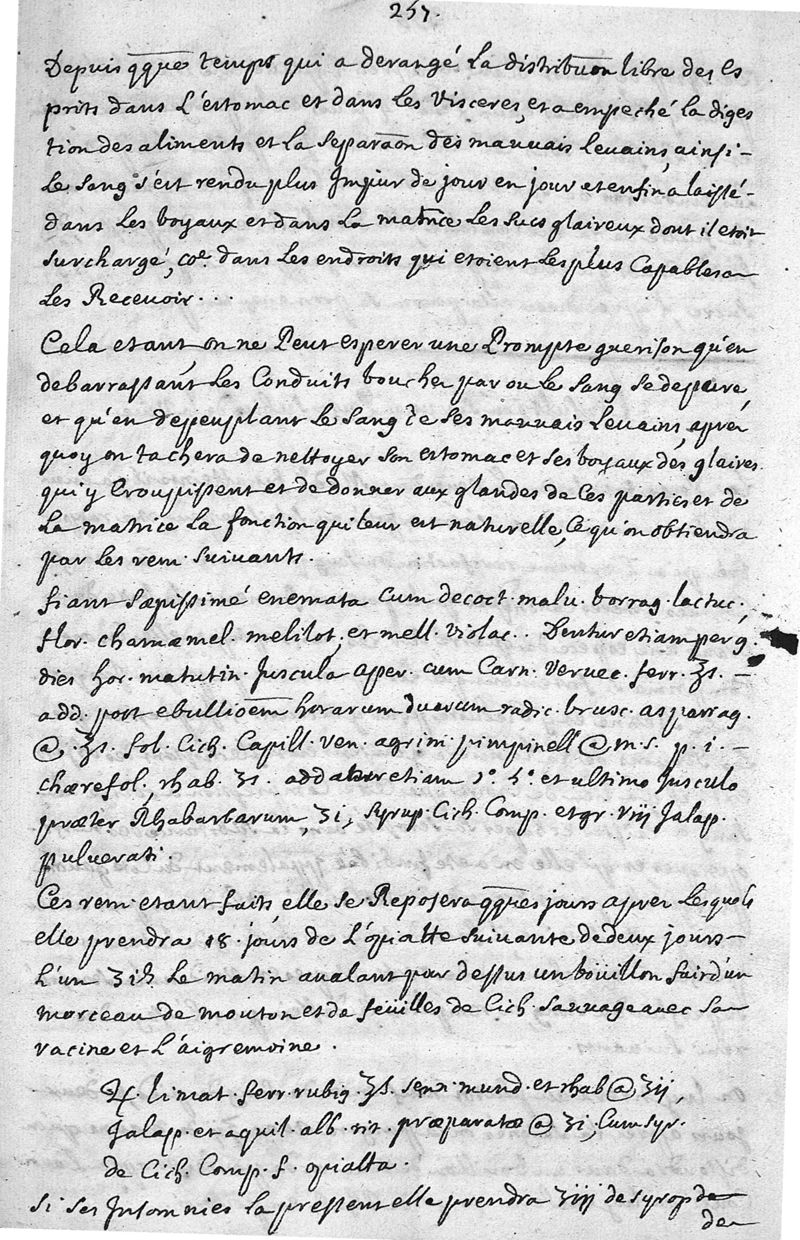 257.
Depuis qques temps qui a derangé la distribuon libre des es
prits dans l'estomac et dans les visceres, et a empeché la diges
tion des aliments et la separaon des mauvais levains, ainsi -
le sang s'est rendu plus Impur de jour en jour et enfin a laissé -
dans les boyaux et dans la matrice les sucs glaireux dont il etoit
surchargé, coe. dans les endroits qui etoient les plus Capables a
les Recevoir . . .
Cela etant, on ne Peut esperer une Prompte guerison qu'en
debarrassant les Conduits bouchez par ou le sang se depure,
et qu'en depeuplant le sang de ses mauvais levains, aprez
quoy on tachera de nettoyer son estomac et ses boyaux des glaires
qui y Croupissent et de donner aux glandes de Ces parties et de
la matrice la fonction qui leur est naturelle, Ce qu'on obtiendra
par les rem. suivants.
fiant sæpissimé enemata cum decoct. malu. borrag. lactuc.,
flor. chamæmel. melilot, et mell. violac.. Dentur etiam per 9
dies hor. matutin. Juscula aper. cum Carn. vervec. ferr. ʒs. -
add. post ebullioem horarum duarum radic. brusc. asparrag.
@. ʒs. fol. Cich. Capill. ven. agrim. pimpinell @ m. s. p. i. -
chærefol., rhab. ʒs. addatur etiam 1°. 5°. et ultimo Jusculo
præter Rhabarbarum, ʒi, syrup. Cich. Comp. et gr. viij Jalap.
pulverati.
Ces rem. etant faits, elle se Reposera qques jours aprez lesquels
elle prendra 18. jours de l'opiatte suivante de deux jours -
l'un ʒiß le matin avalant par dessus un boüillon fait d'un
morceau de mouton et de feüilles de Cich. sauvage avec sa
racine et l'aigremoine.
♃. limat. ferr. rubig. ʒs. senn. mund. et rhab @ ʒij,
Jalap. et aquil. alb. rit. præparatæ @ ʒi, Cum syr.
de Cich. Comp. f. opialta.
si ses Insomnies la pressent elle prendra ʒiij de syrop de
de